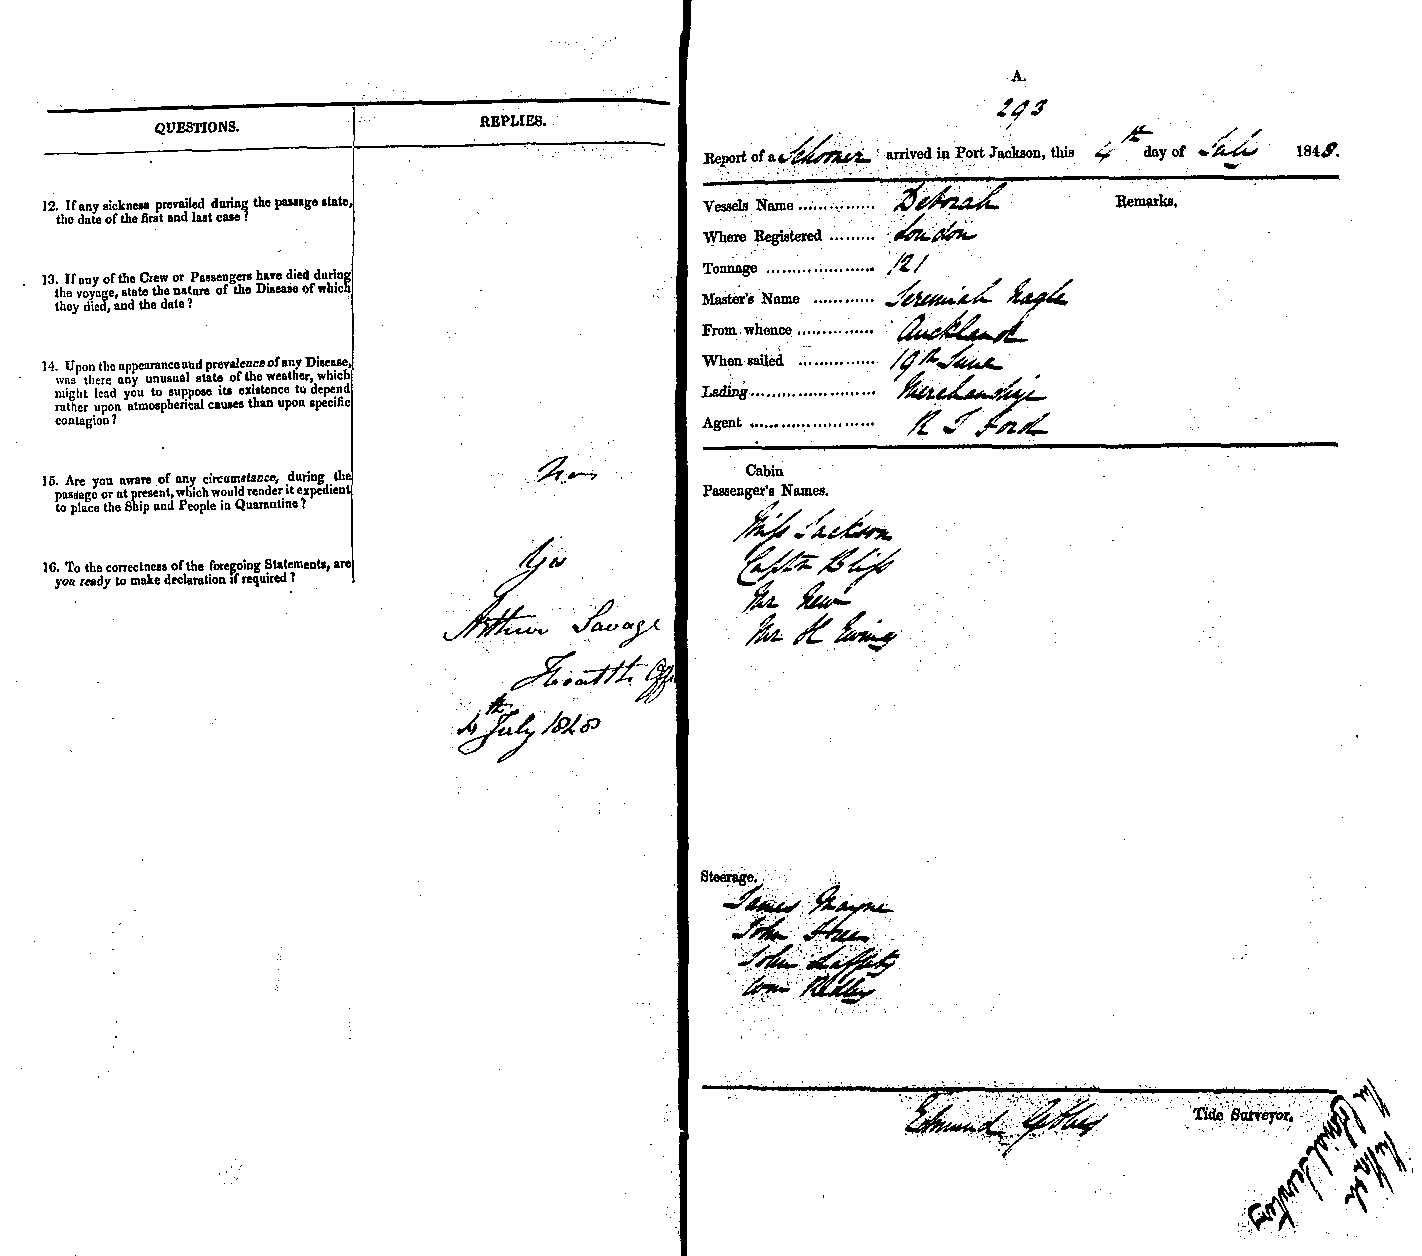 QUESTIONS.
REPLIES.
12. If any sickness prevailed during the passage state,
the date of the first and last case?
13. If any of the Crew or Passengers have died during
the voyage, state the nature of the Disease of which
they died, and the date?
14. Upon the appearance and prevalence of any Disease,
was there any unusual state of the weather, which
might lead you to suppose its existence to depend
rather upon atmospherical causes than upon specific
contagion?
15. Are you aware of any circumstance, during the
passage or at present, which would render it expedient
to place the Ship and People in Quarantine?
16. To the correctness of the foregoing Statements, are
you ready to make declaration if required?
Yes
Arthur Savage
Health Off
4th July 1848
A.
293
Report of a Schooner arrived in Port Jackson, this 4th day of July 1848.
Vessels Name .............. Deborah
Remarks.
Where Registered ......... London
Tonnage ..................... 121
Master's Name ............ Jeremiah Nagle
From whence ............... Auckland
When sailed ............... 19th June
Lading........................ Merchandize
Agent ........................ R T Ford
Cabin
Passenger's Names.
Miss Jackson
Captn Bliss
Mr New
Mr H Ewing
Steerage.
James Mayne
John
John Lafferty
Wm
Edmund Gibbes
Tide Surveyor.
The Colonial Secretary